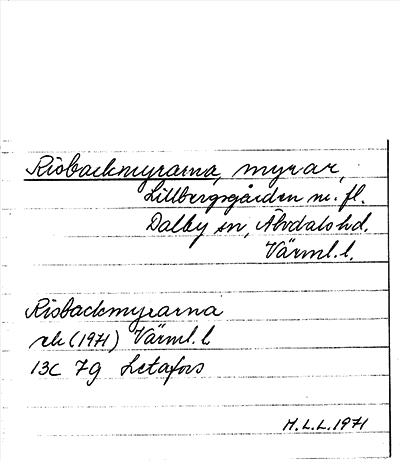 Risbackmyrarna, myrar,
Lillbergsgården m. fl.
Dalby sn, Älvdals hd.
Värml. l.
Risbackmyrarna
rk (1971) Värml. l
13C 7g Letafors
H.L.L. 1971